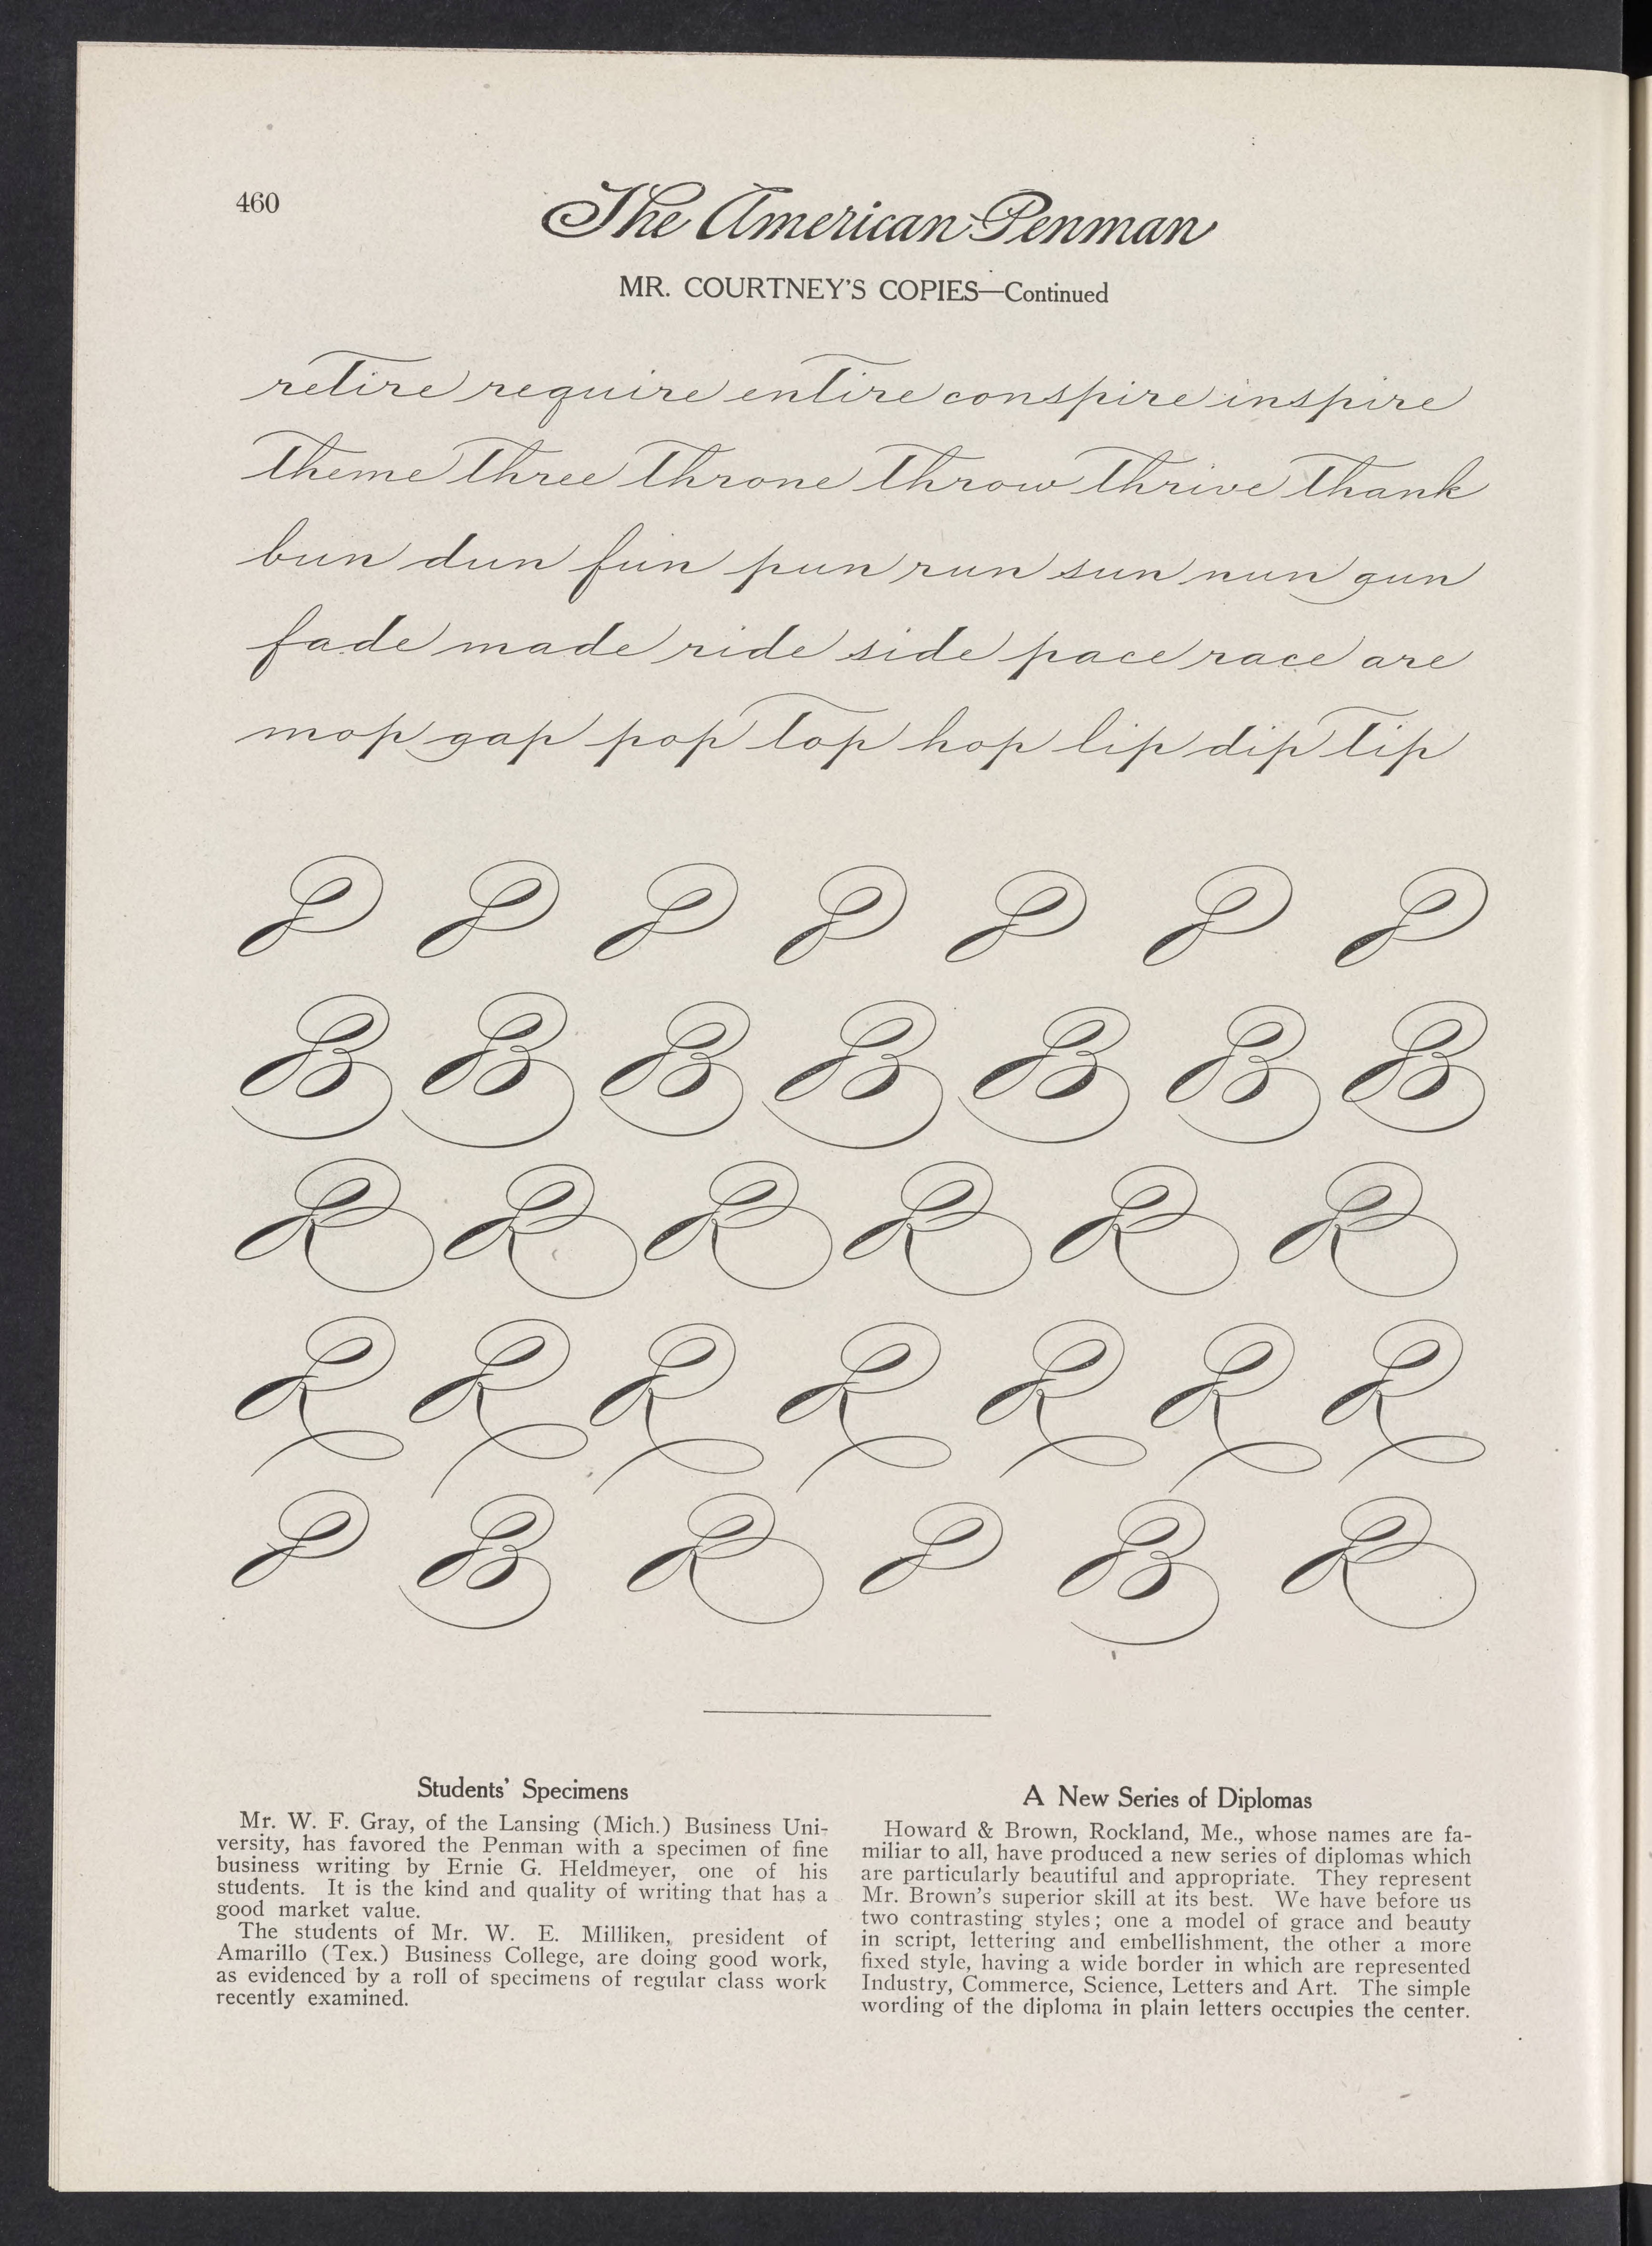 460
The American Penman
MR. COURTNEY'S COPIES—Continued
retire require entire conspire inspire
theme three throne throw thrive thank
bun dun fun pun run sun nun gun
fade made ride side pace race are
mop gap pop top hop lip dip tip
P P P P P P P
B B B B B B B
R R R R R R
R R R R R R R
P B R P B R
Students' Specimens
Mr. W. F. Gray, of the Lansing (Mich.) Business Uni-
versity, has favored the Penman with a specimen of fine
business writing by Ernie G. Heldmeyer, one of his
students. It is the kind and quality of writing that has a
good market value.
The students of Mr. W. E. Milliken, president of
Amarillo (Tex.) Business College, are doing good work,
as evidenced by a roll of specimens of regular class work
recently examined.
A New Series of Diplomas
Howard & Brown, Rockland, Me., whose names are fa-
miliar to all, have produced a new series of diplomas which
are particularly beautiful and appropriate. They represent
Mr. Brown's superior skill at its best. We have before us
two contrasting styles; one a model of grace and beauty
in script, lettering and embellishment, the other a more
fixed style, having a wide border in which are represented
Industry, Commerce, Science, Letters and Art. The simple
wording of the diploma in plain letters occupies the center.